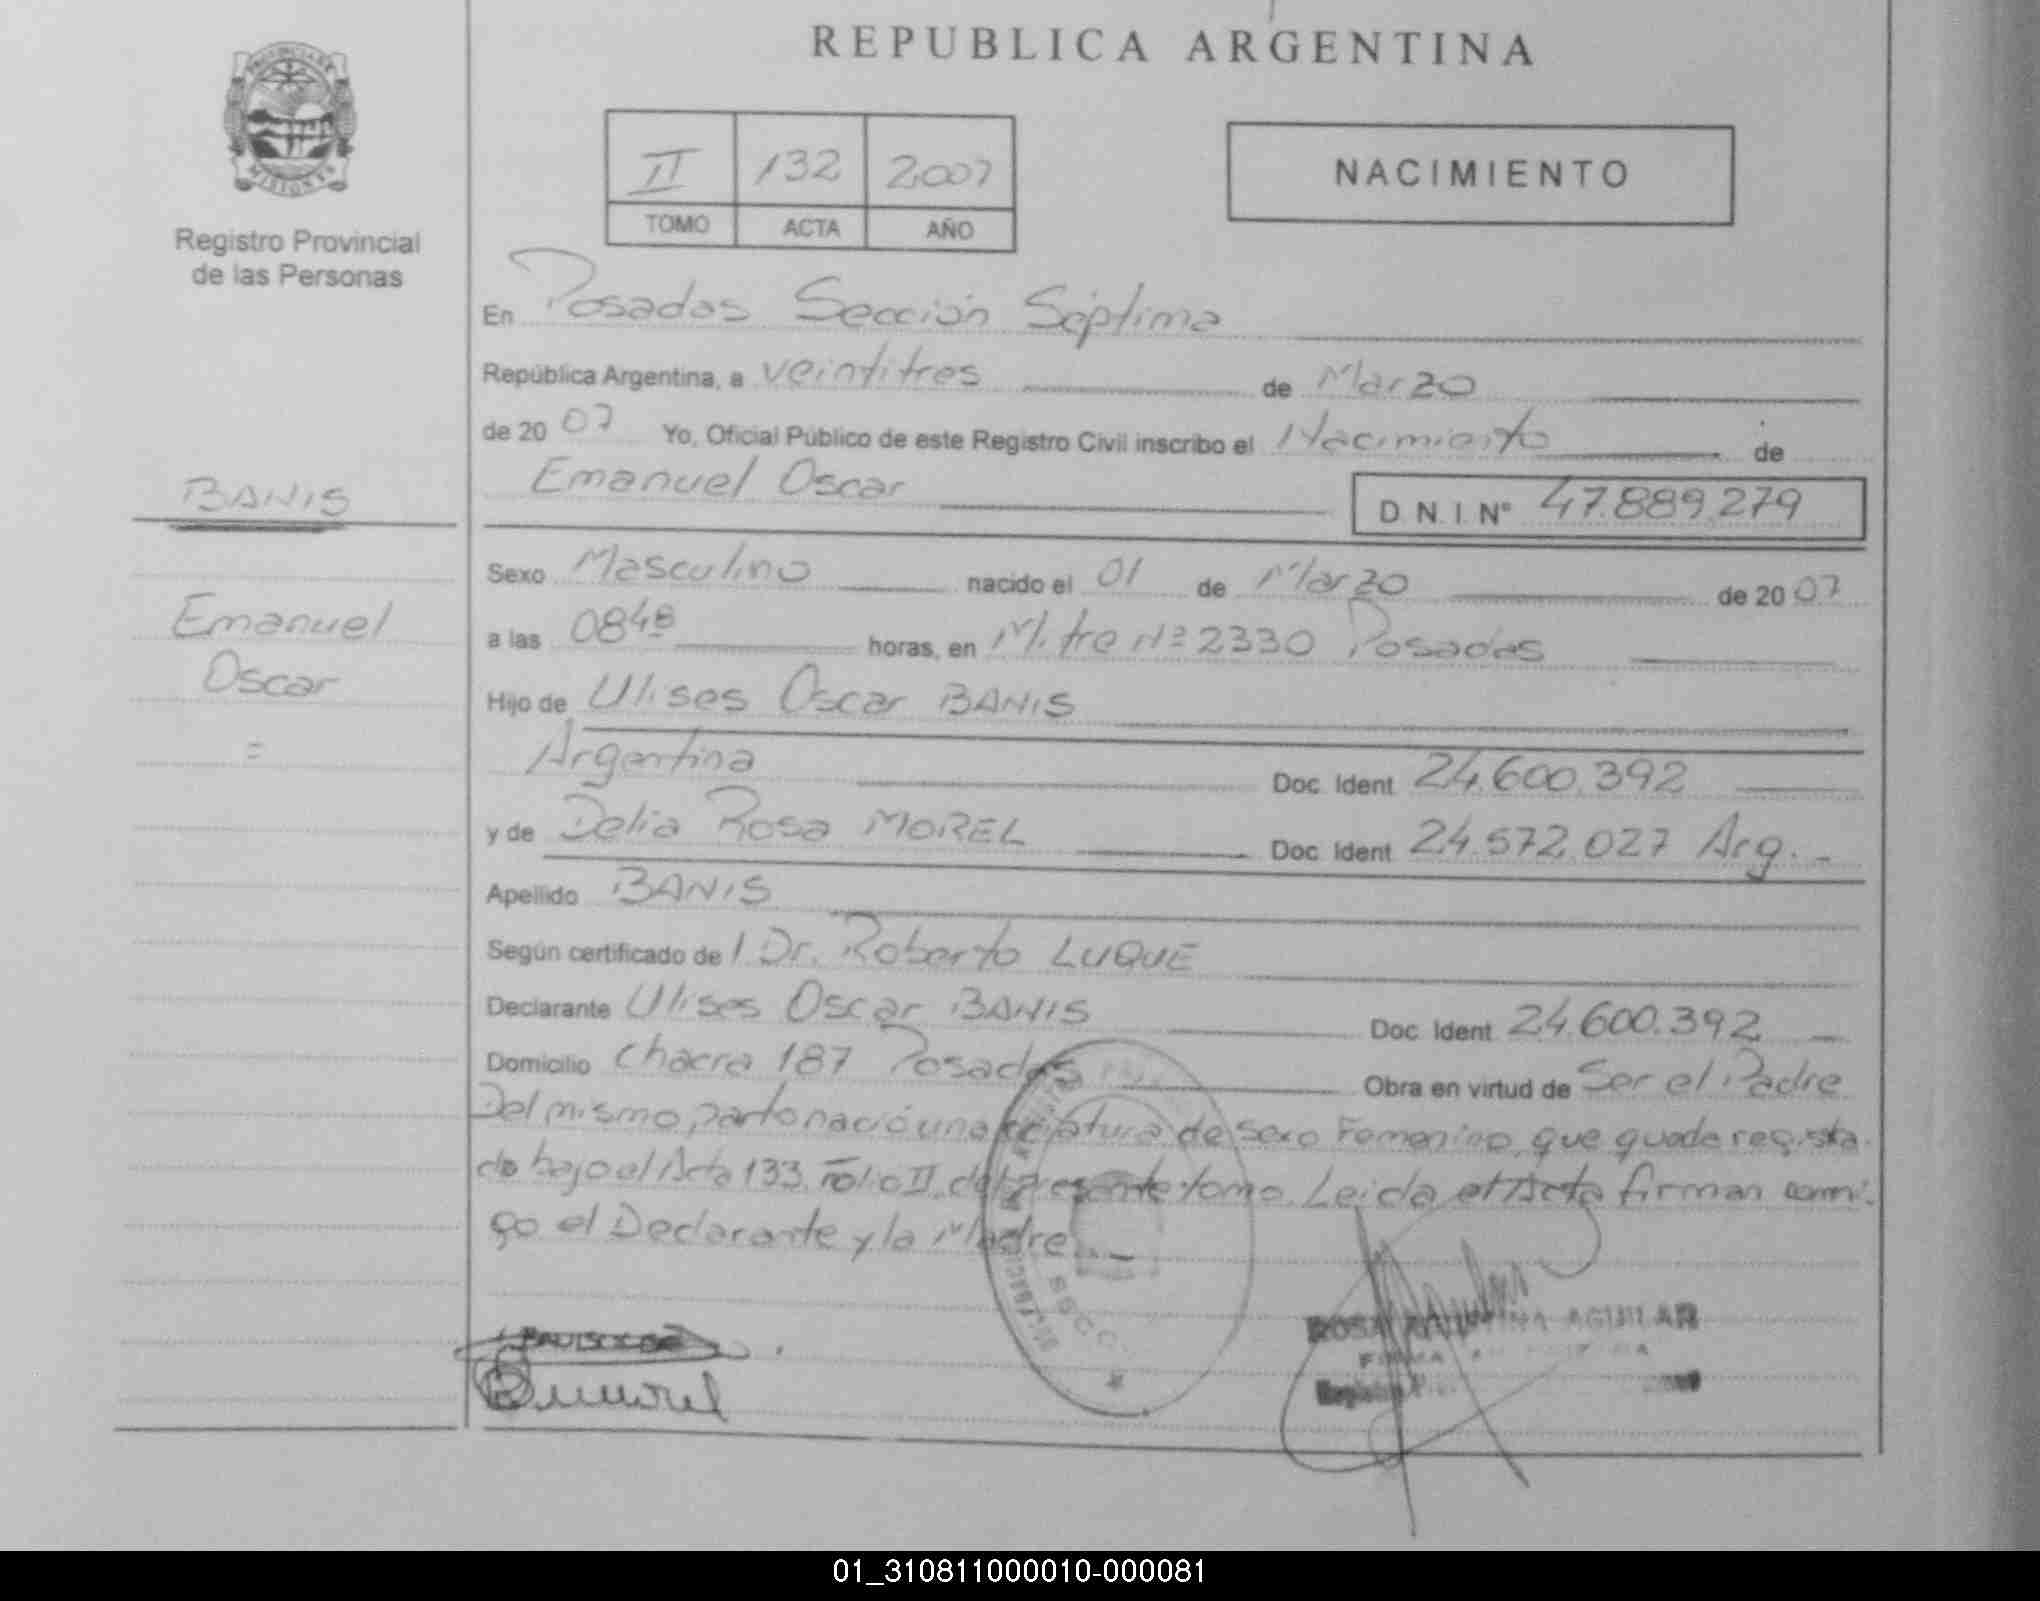 REPUBLICA ARGENTINA
PROVINCIA DE
MISIONES
Registro Provincial
de las Personas
II 132 2007
TOMO ACTA AÑO
NACIMIENTO
En Posadas Sección Séptima
República Argentina, a veintitres de Marzo
de 20 07 Yo, Oficial Público de este Registro Civil inscribo el Nacimiento de
BANIS
Emanuel Oscar D.N.I. Nº 47.889.279
Sexo Masculino nacido el 01 de Marzo de 20 07
Emanuel
Oscar
=
a las 08 48 horas, en Mitre Nº 2330 Posadas
Hijo de Ulises Oscar BANIS
Argentina Doc. Ident. 24.600.392
y de Delia Rosa MOREL Doc. Ident. 24.572.027 Arg. -
Apellido BANIS
Según certificado de / Dr. Roberto LUQUE
Declarante Ulises Oscar BANIS Doc. Ident. 24.600.392 -
Domicilio Chacra 187 Posadas Obra en virtud de Ser el Padre
Del mismo parto nació una criatura de sexo Femenino, que queda regista-
do bajo el Acta 133 Folio II del presente tomo. Leida el Acta firman conmi-
go el Declarante y la Madre. -
ROSA AGUILAR
01_310811000010-000081